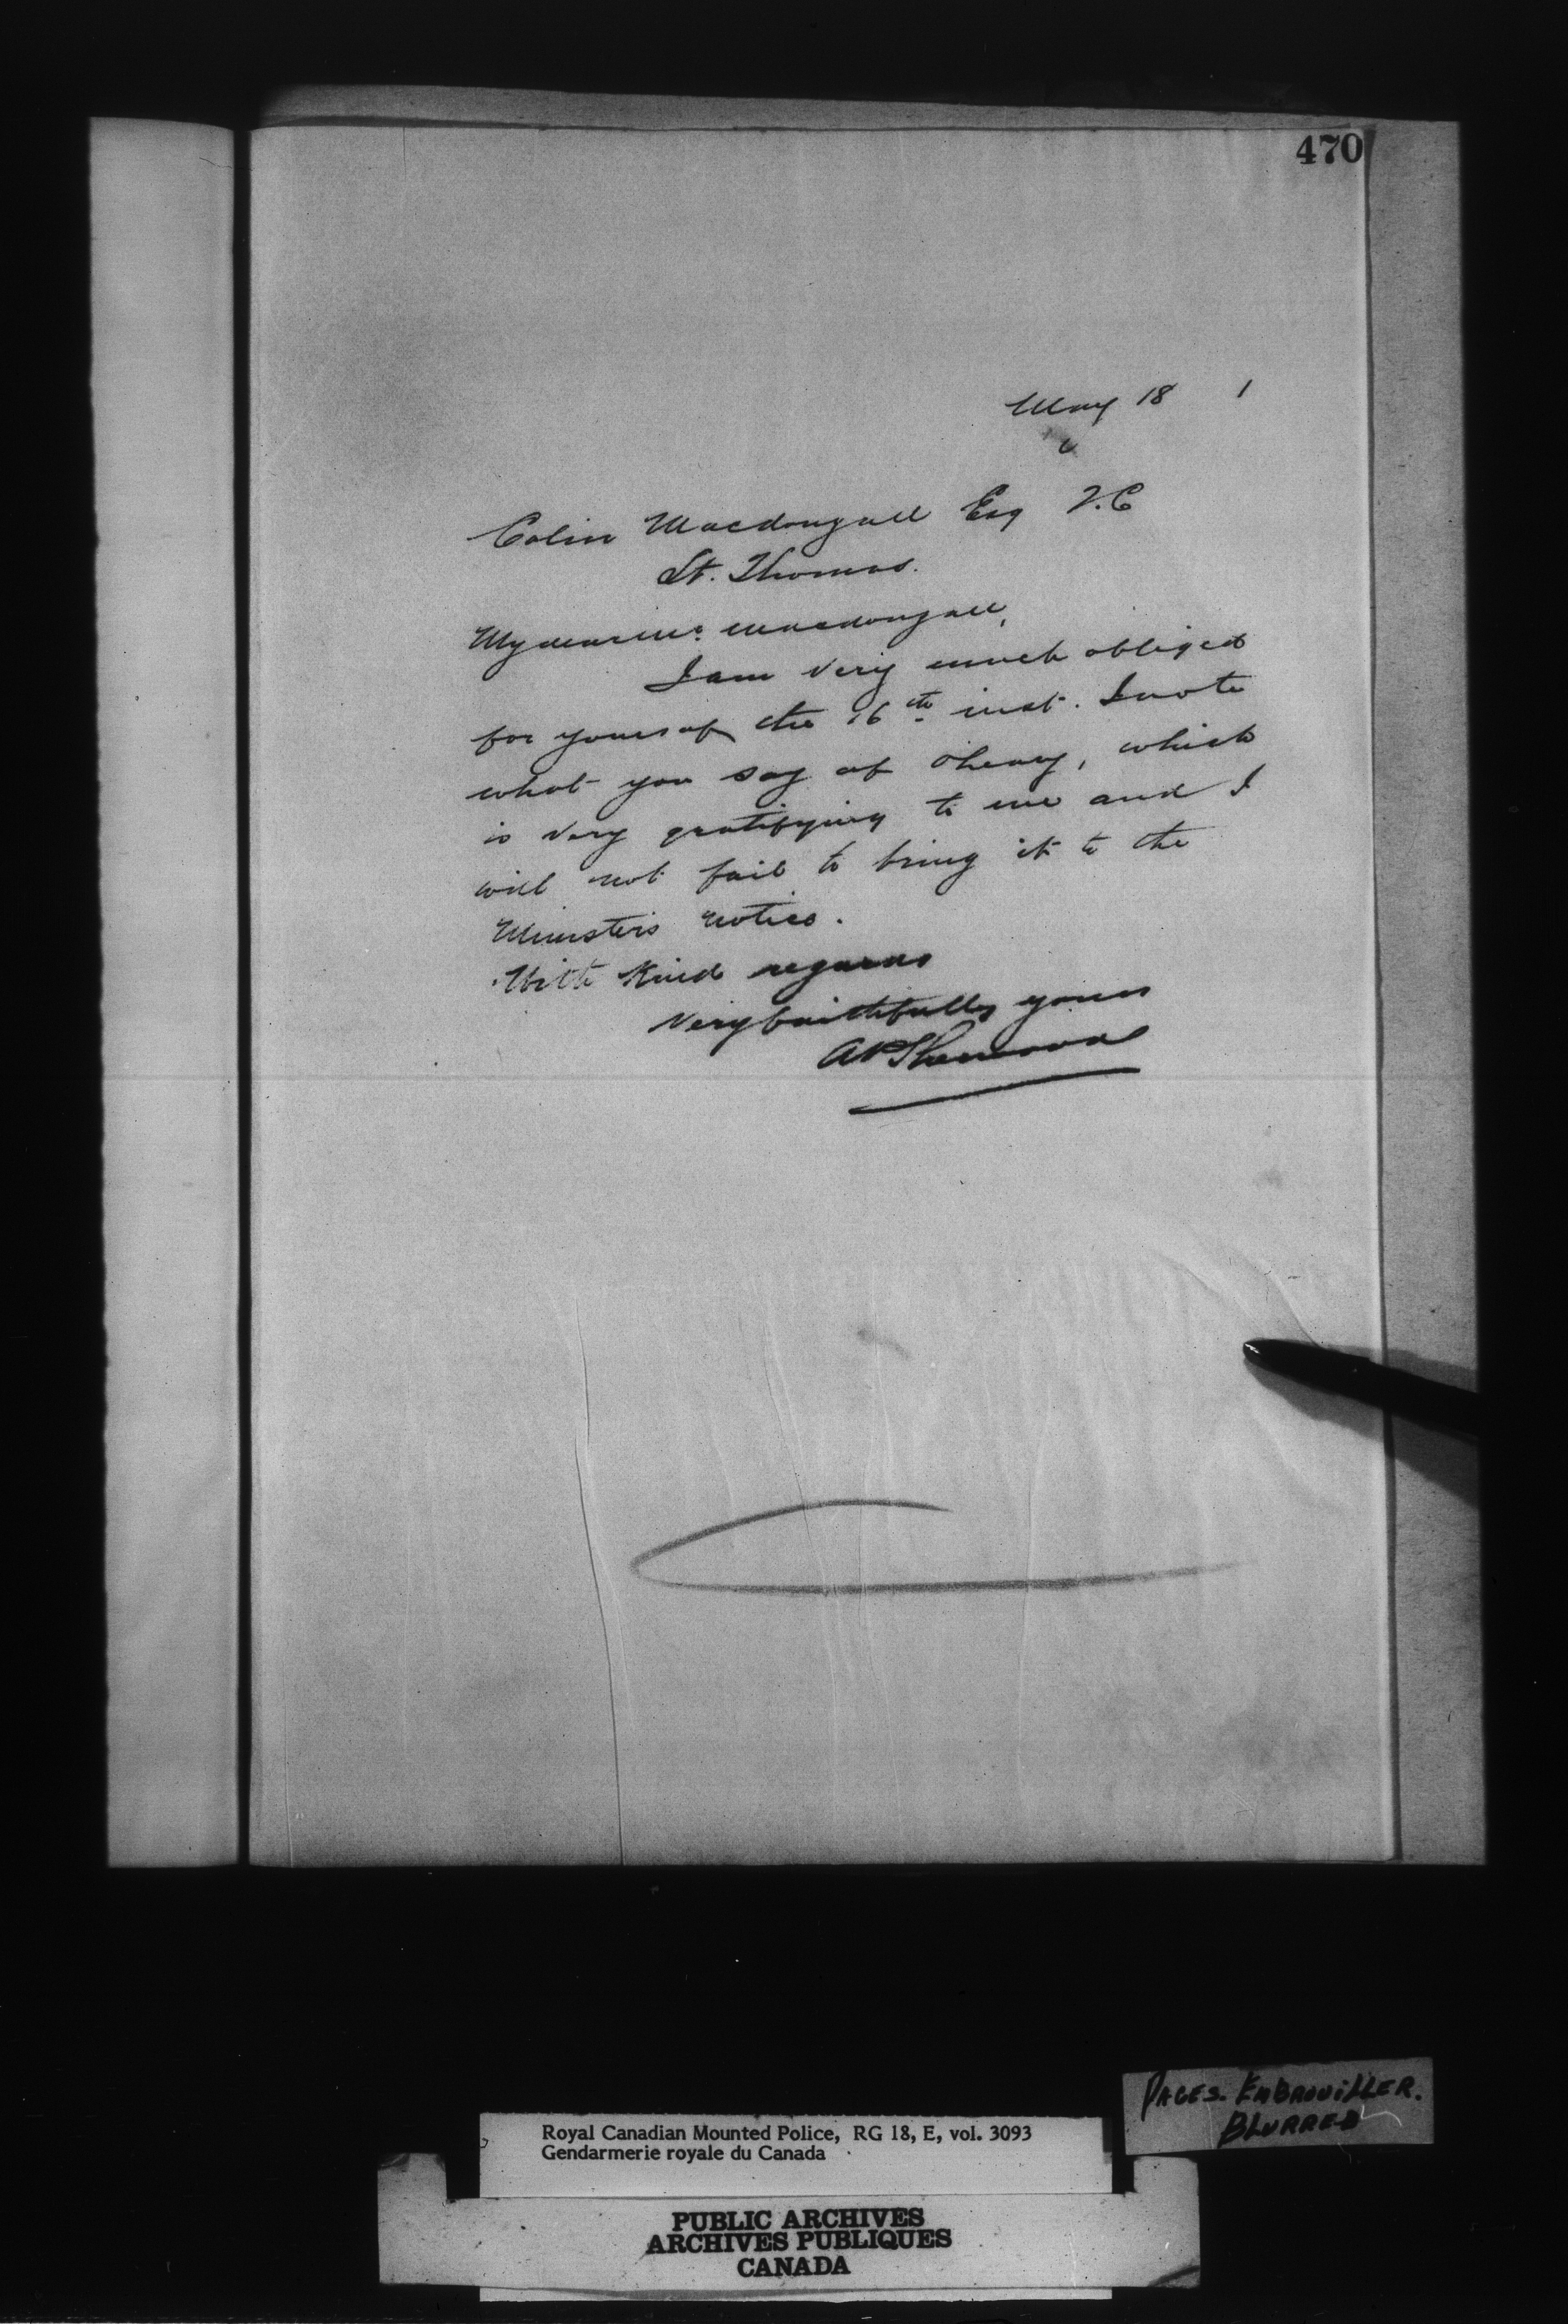 470
May 18 1
Colin Macdougall Esq Q.C
St. Thomas.
My dear Mr. Macdougall,
I am very much obliged
for yours of the 16th inst. I note
what you say of Oheary, which
is very gratifying to me and I
will not fail to bring it to the
Ministers notice.
With kind regards
Very faithfully yours
A P Sherwood
PAGES. EMBROUILLER.
BLURRED
Royal Canadian Mounted Police, RG 18, E, vol. 3093
Gendarmerie royale du Canada
PUBLIC ARCHIVES
ARCHIVES PUBLIQUES
CANADA